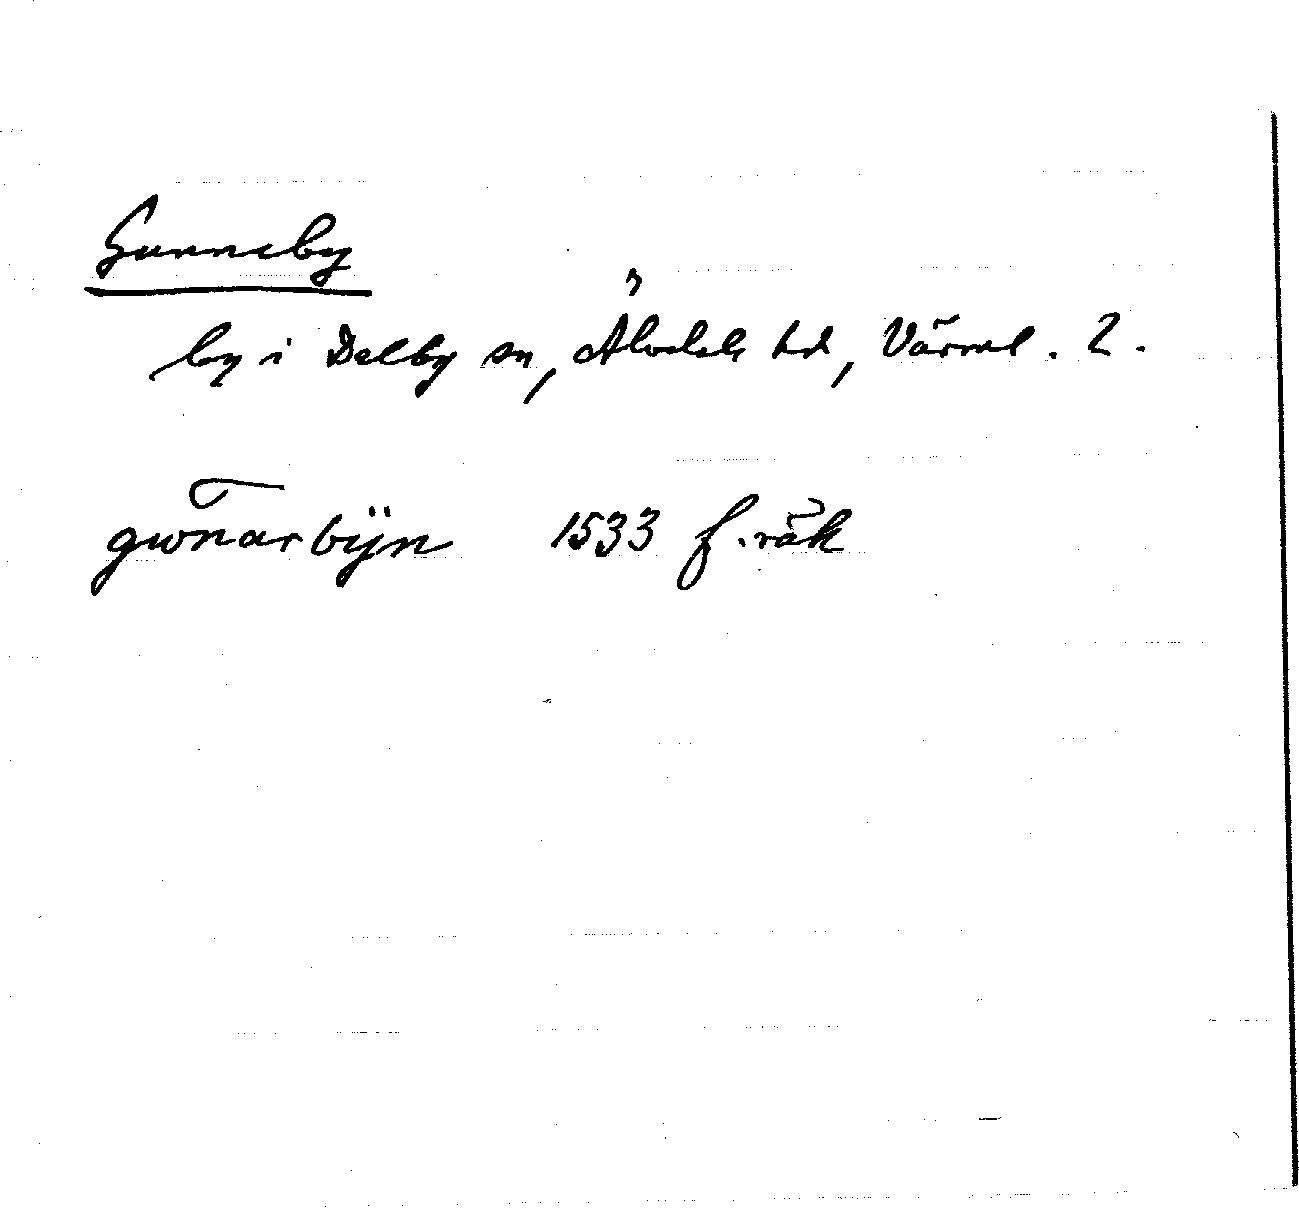 Gunneby
by i Dalby sn, Älvdals hd, Värml. l.
gwnarbÿn 1533 f.räk